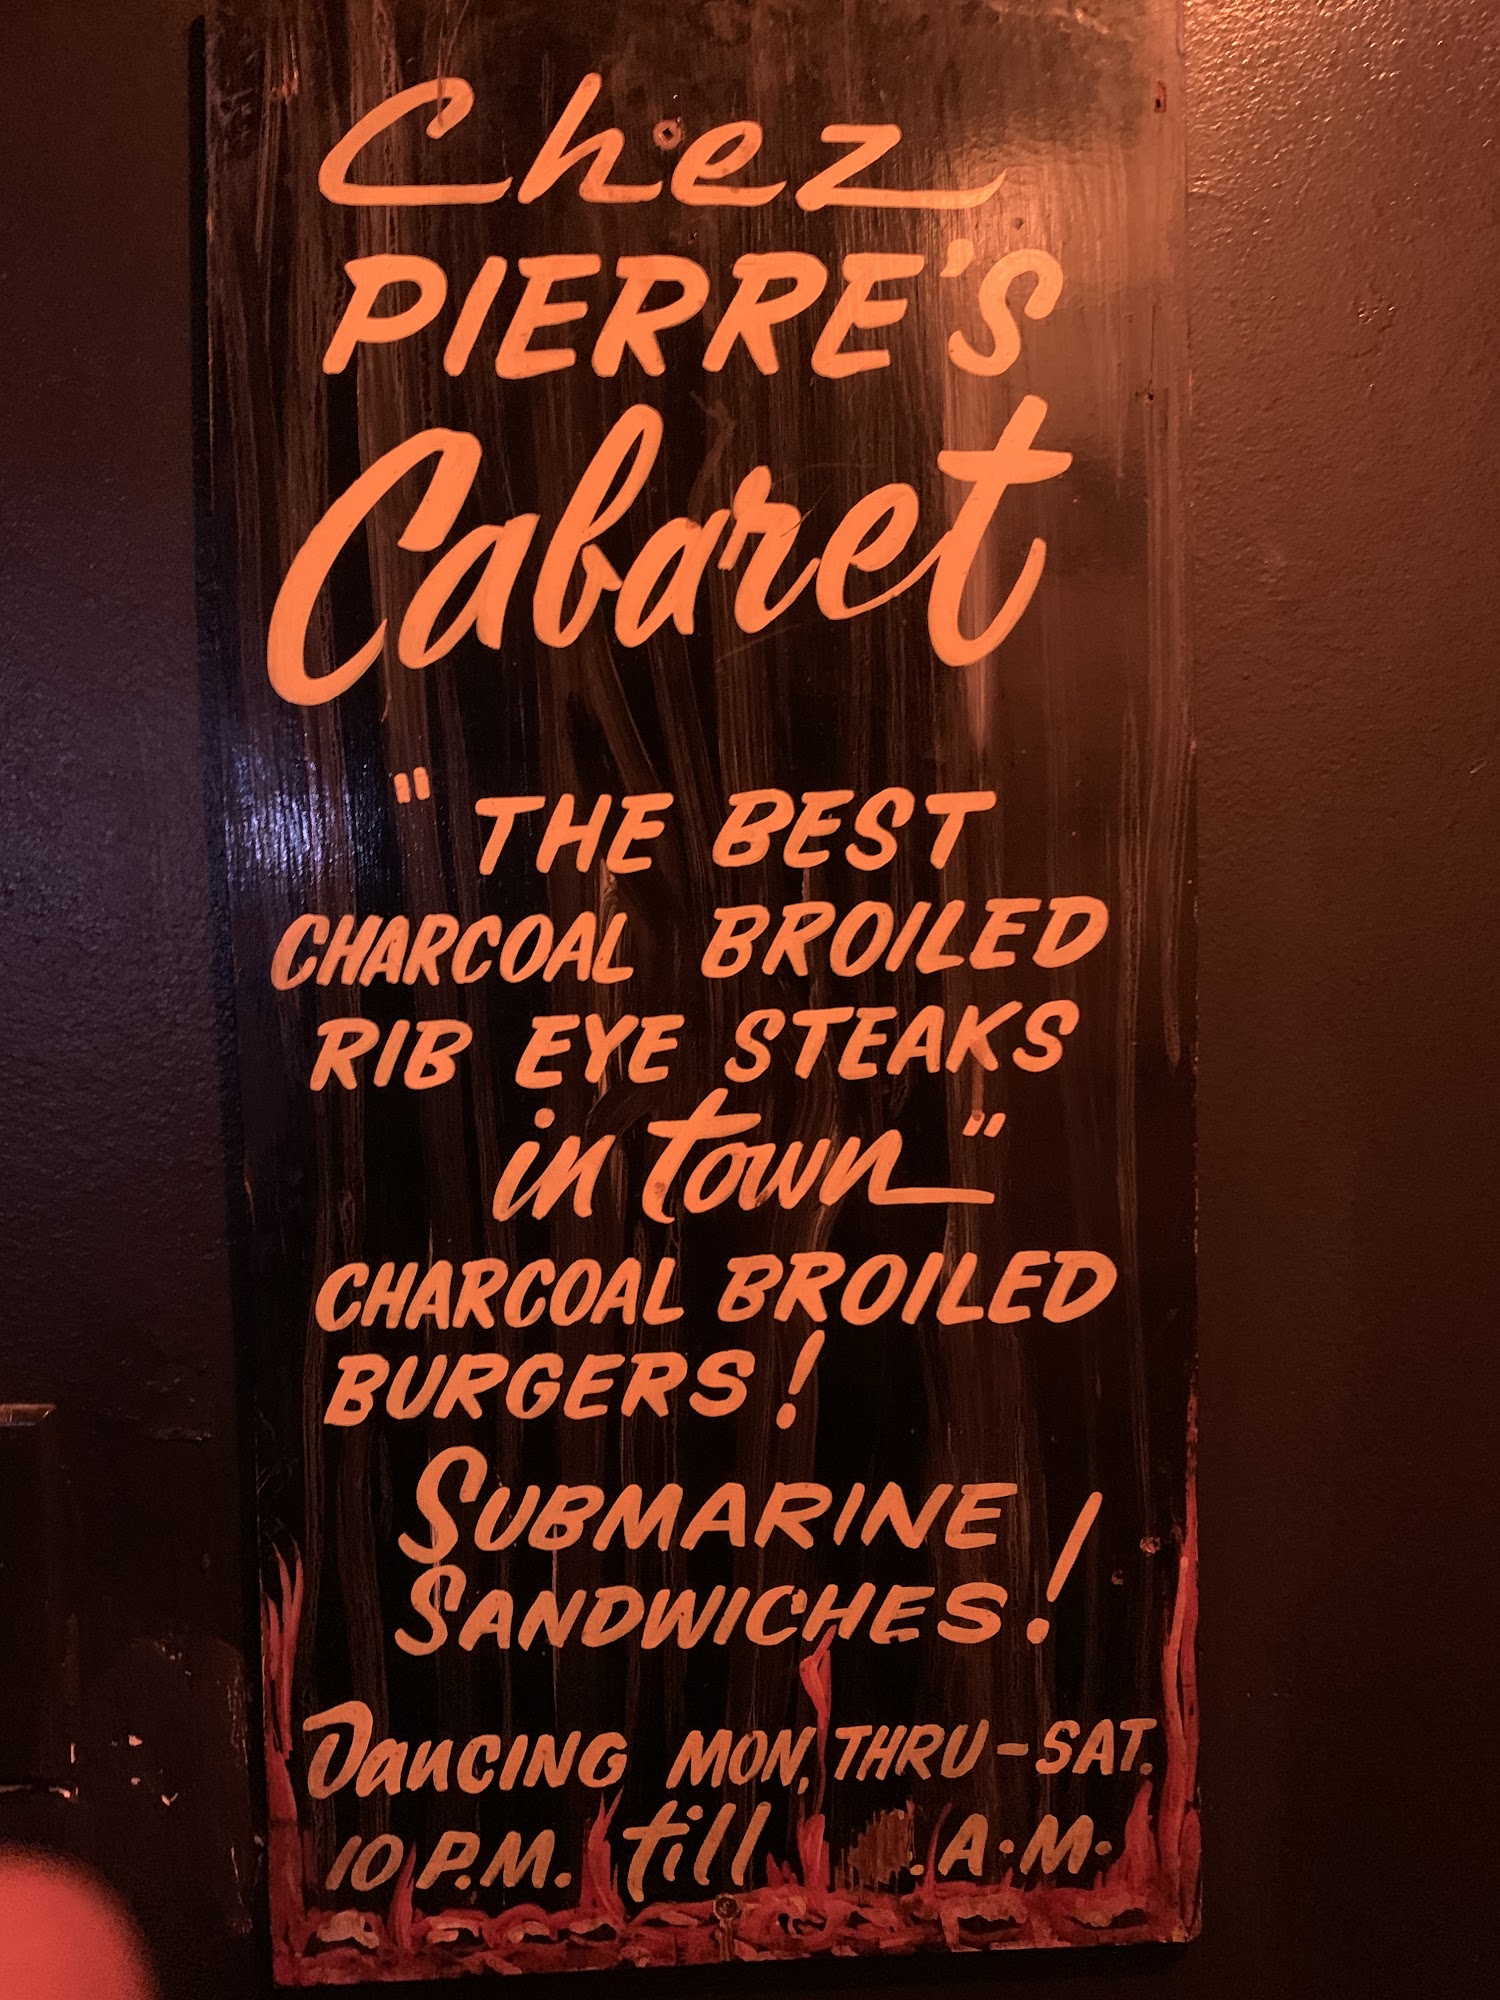 Chez
PIERRE'S
Cabaret
" THE BEST
CHARCOAL BROILED
RIB EYE STEAKS
in town "
CHARCOAL BROILED
BURGERS!
SUBMARINE
SANDWICHES!
DANCING MON, THRU - SAT.
10 P.M. till . A.M.